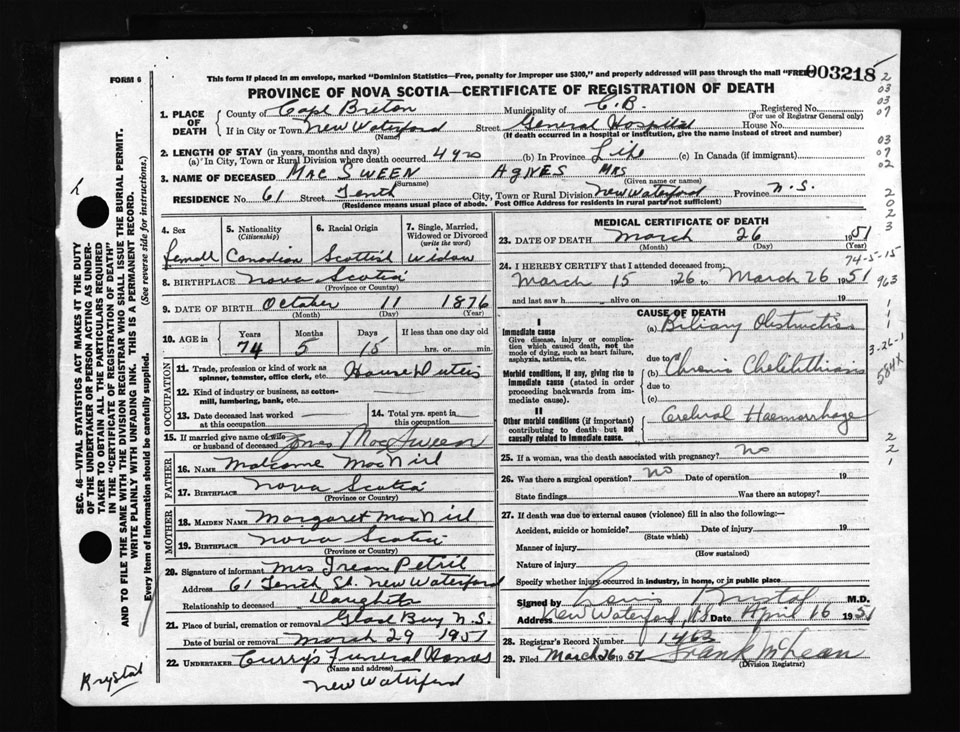 FORM 6
This form if placed in an envelope, marked "Dominion Statistics—Free, penalty for improper use $300," and properly addressed will pass through the mail "FREE"
003218
PROVINCE OF NOVA SCOTIA—CERTIFICATE OF REGISTRATION OF DEATH
1. PLACE OF DEATH
County of Cape Breton Municipality of C.B. Registered No.
(For use of Registrar General only)
If in City or Town New Waterford Street General Hospital House No.
(Name) (If death occurred in a hospital or institution, give the name instead of street and number)
2. LENGTH OF STAY (in years, months and days)
(a) In City, Town or Rural Division where death occurred 4 yrs (b) In Province Life (c) In Canada (if immigrant)
3. NAME OF DECEASED MacSween Agnes Mrs
(Surname) (Given name or names)
RESIDENCE No. 61 Street Tenth City, Town or Rural Division New Waterford Province N.S.
(Residence means usual place of abode. Post Office Address for residents in rural parts not sufficient)
4. Sex
5. Nationality (Citizenship)
6. Racial Origin
7. Single, Married, Widowed or Divorced (write the word)
femell Canadian Scottish Widow
8. BIRTHPLACE Nova Scotia
(Province or Country)
9. DATE OF BIRTH October 11 1876
(Month) (Day) (Year)
10. AGE in Years Months Days If less than one day old
74 5 15 hrs. or min.
OCCUPATION
11. Trade, profession or kind of work as spinner, teamster, office clerk, etc. House Duties
12. Kind of industry or business, as cotton-mill, lumbering, bank, etc.
13. Date deceased last worked at this occupation
14. Total yrs. spent in this occupation
15. If married give name of wife or husband of deceased MacSween
FATHER
16. NAME Malcome MacNiel
17. BIRTHPLACE Nova Scotia
(Province or Country)
MOTHER
18. MAIDEN NAME Margaret MacNiel
19. BIRTHPLACE Nova Scotia
(Province or Country)
20. Signature of informant Mrs Irean Petril
Address 61 Tenth St. New Waterford
Relationship to deceased Daughter
21. Place of burial, cremation or removal Glace Bay N.S.
Date of burial or removal March 29 1951
22. UNDERTAKER Curry's Funeral Homes
(Name and address)
New Waterford
MEDICAL CERTIFICATE OF DEATH
23. DATE OF DEATH March 26 1951
(Month) (Day) (Year)
74-5-15
24. I HEREBY CERTIFY that I attended deceased from:
March 15 1926 to March 26 1951
and last saw h alive on 19
CAUSE OF DEATH
I
Immediate cause
Give disease, injury or complication which caused death, not the mode of dying, such as heart failure, asphyxia, asthenia, etc.
(a) Biliary Obstruction
due to
Morbid conditions, if any, giving rise to immediate cause (stated in order proceeding backwards from immediate cause).
(b) Chronic Chelelithiasis
due to
(c)
II
Other morbid conditions (if important) contributing to death but not causally related to immediate cause.
Cerebral Haemorrhage
25. If a woman, was the death associated with pregnancy? No
26. Was there a surgical operation? No Date of operation 19
State findings Was there an autopsy?
27. If death was due to external causes (violence) fill in also the following:—
Accident, suicide or homicide? Date of injury 19
(State which)
Manner of injury
(How sustained)
Nature of injury
Specify whether injury occurred in industry, in home, or in public place
Signed by M.D.
Address New Waterford, N.S. Date April 16 1951
28. Registrar's Record Number 1463
29. Filed March 26 1951 Frank McLean
(Division Registrar)
SEC. 46—VITAL STATISTICS ACT MAKES IT THE DUTY
OF THE UNDERTAKER OR PERSON ACTING AS UNDER-
TAKER TO OBTAIN ALL THE PARTICULARS REQUIRED
IN THE "CERTIFICATE OF REGISTRATION OF DEATH"
AND TO FILE THE SAME WITH THE DIVISION REGISTRAR WHO SHALL ISSUE THE BURIAL PERMIT.
WRITE PLAINLY WITH UNFADING INK. THIS IS A PERMANENT RECORD.
Every item of information should be carefully supplied. (See reverse side for instructions.)
Krystal
2
03
03
07
03
07
02
2
0
2
3
963
1
1
1
3-26-1
584X
2
2
1